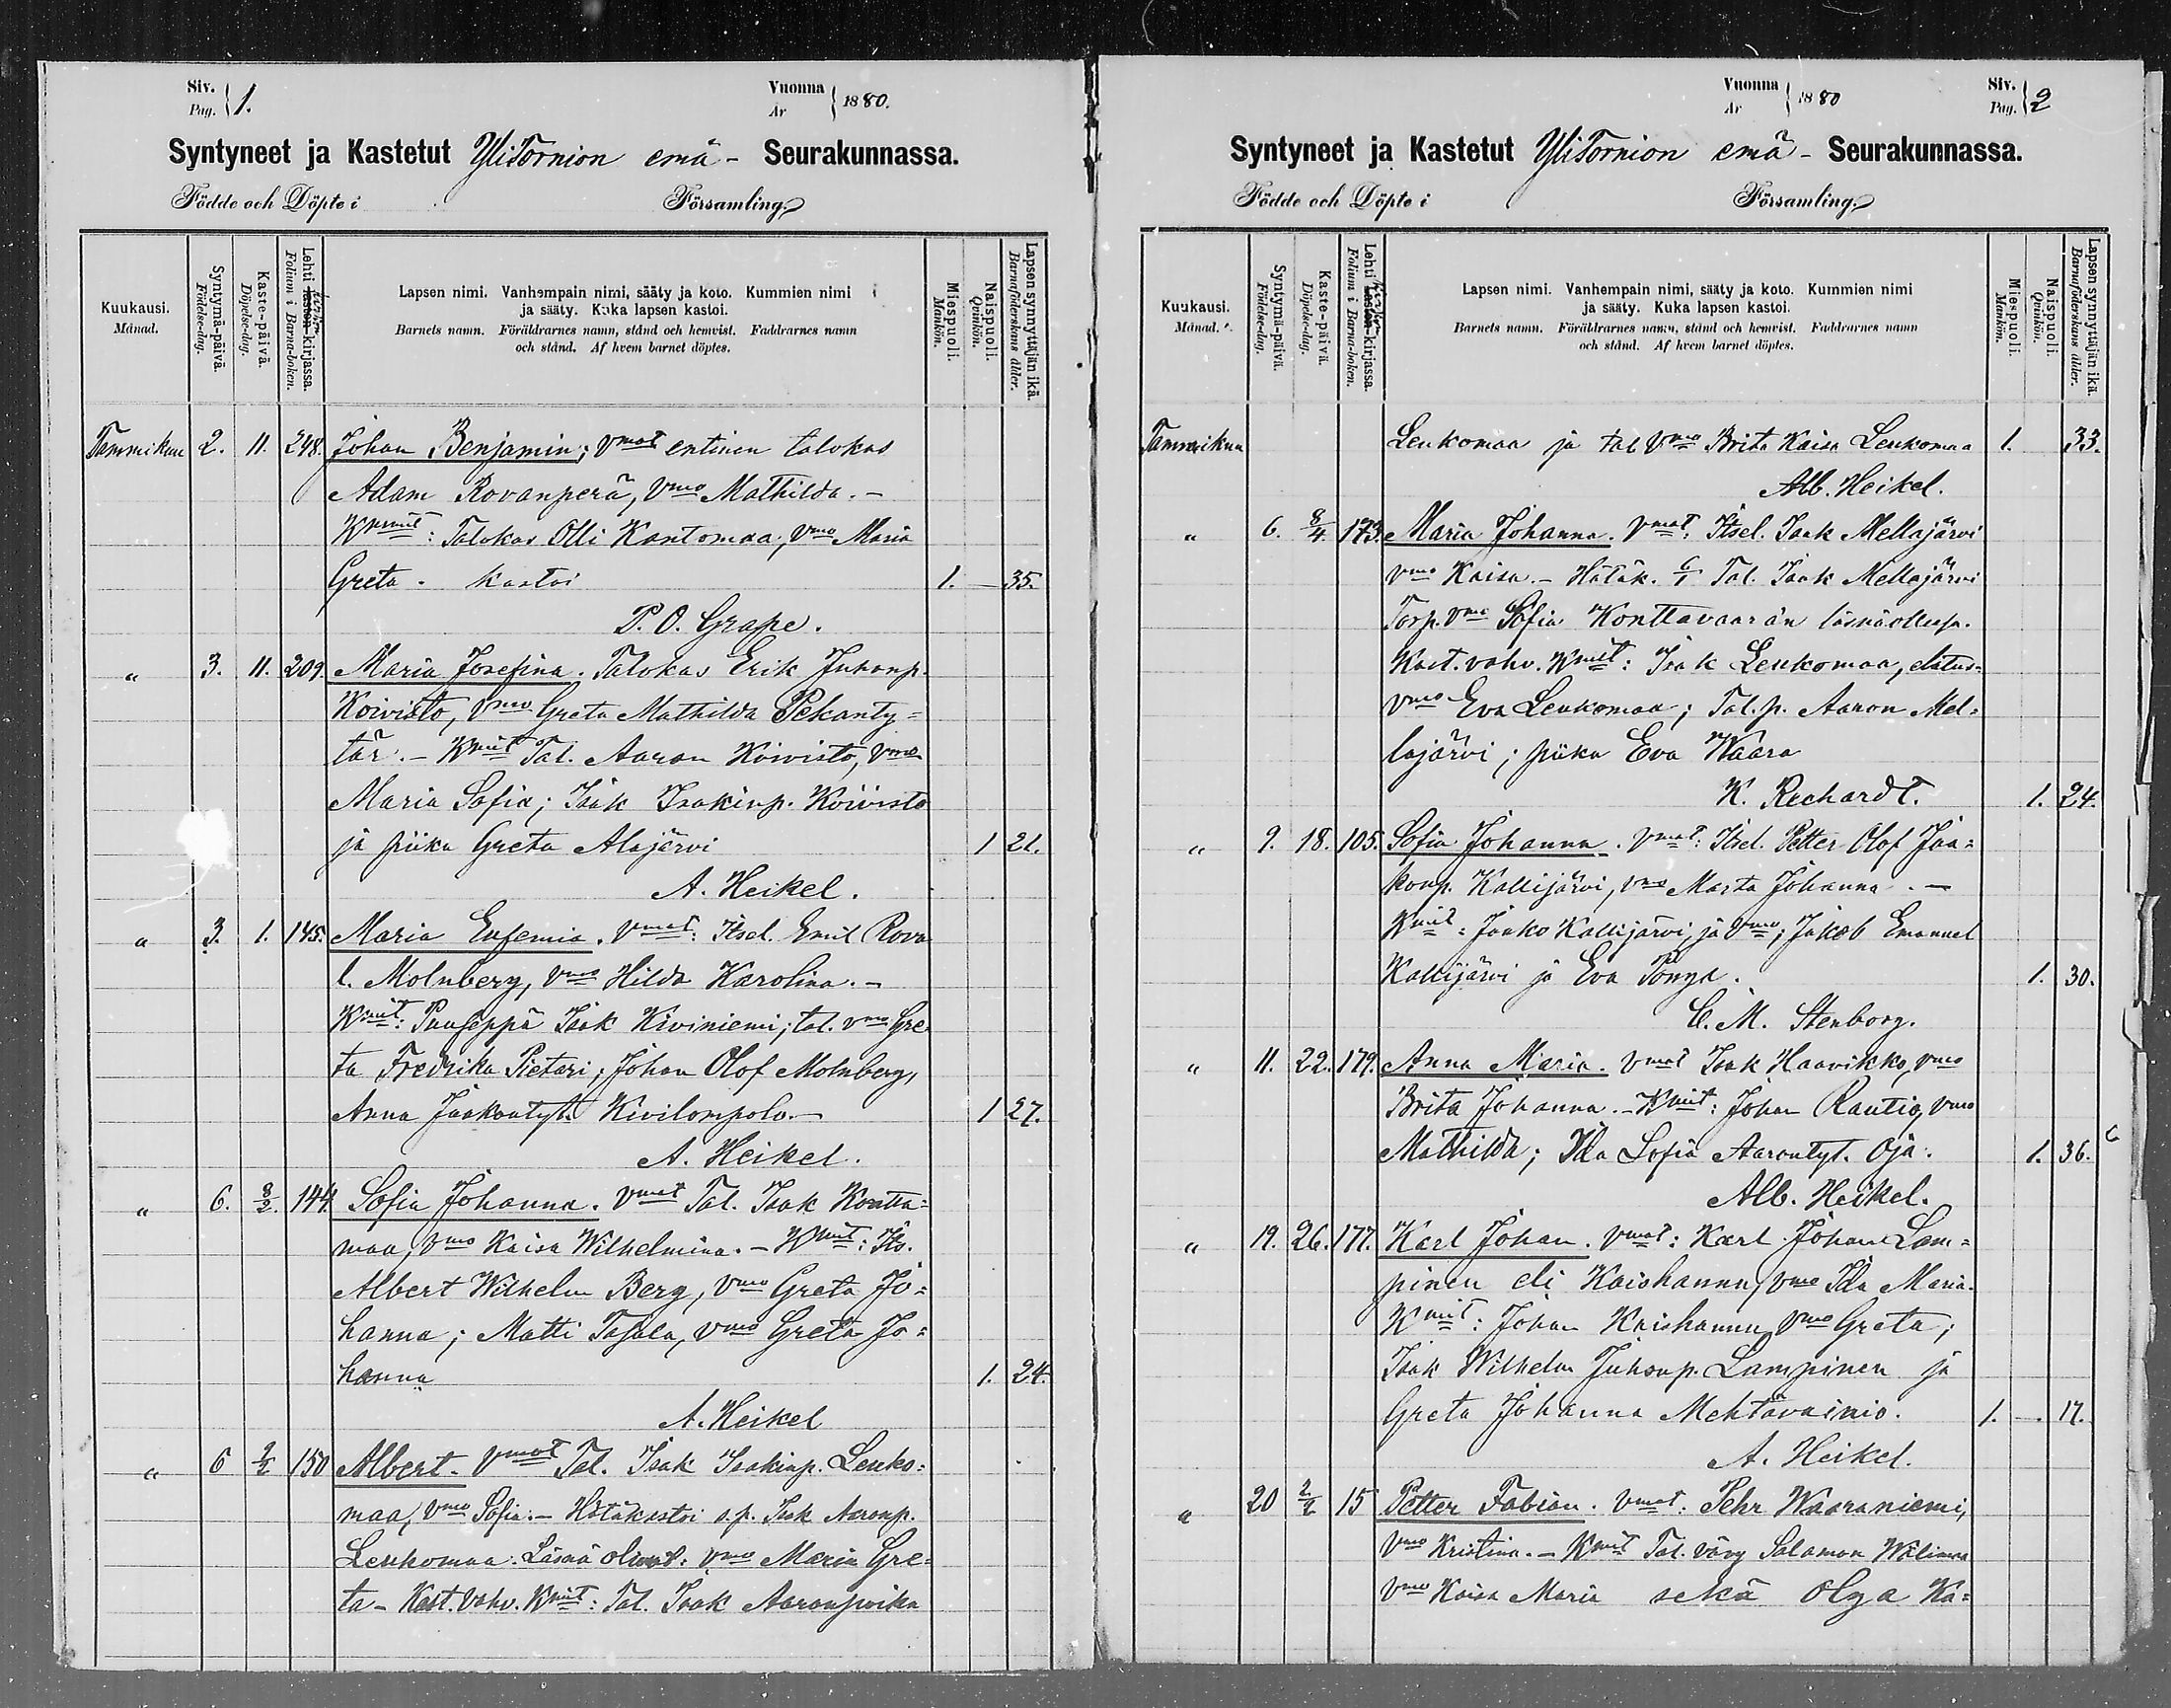 Siv.
Pag. 1.
Vuonna
År 1880.
Syntyneet ja Kastetut YliTornion emä- Seurakunnassa.
Födde och Döpte i Församling.
Kuukausi.
Månad.
Syntymä-päivä.
Födelse-dag.
Kaste-päivä.
Döpelse-dag.
Lehti lasten-kirjassa.
Folium i Barna-boken.
Lapsen nimi. Vanhempain nimi, sääty ja koto. Kummien nimi
ja sääty. Kuka lapsen kastoi.
Barnets namn. Föräldrarnes namn, stånd och hemvist. Faddrarnes namn
och stånd. Af hvem barnet döptes.
Miespuoli.
Mankön.
Naispuoli.
Qvinkön.
Lapsen synnyttäjän ikä.
Barnaföderskans ålder.
Tammikuu 2. 11. 248. Johan Benjamin; Vmat entinen talokas
Adam Rovanperä, Vmo Mathilda. -
Talokas Olli Kantomaa, Vmo Maria
Greta. kastoi 1. - 35.
P. O. Grape.
" 3. 11. 209. Maria Josefina. Talokas Erik Juhonp.
Koivisto, Vmo Greta Mathilda Pekanty=
tär. - Kmit Tal. Aaron Koivisto, Vmo
Maria Sofia; Isak Isakinp. Koivisto
ja piika Greta Alajärvi 1 21.
A. Heikel.
" 3. 1. 145. Maria Eufemia. Vmat: Itsel. Emil Rova
l. Molnberg, Vmo Hilda Karolina. -
Kmit: Puuseppä Isak Kiviniemi; tal. vmo Gre
ta Fredrika Pietari; Johan Olof Molnberg,
Anna Jaakontyt. Kivilompolo. - 1 27.
A. Heikel.
" 6. 8/2. 144 Sofia Johanna. Vmat Tal. Isak Kontta=
maa, Vmo Kaisa Wilhelmina. - Kmit: Its.
Albert Wilhelm Berg, Vmo Greta Jo=
hanna; Matti Tapala, Vmo Greta Jo=
hanna 1. 24.
A. Heikel
" 6 2/2 150 Albert. Vmat Tal. Isak Isakinp. Leuko=
maa, Vmo Sofia. - Hätäkastoi s.p. Isak Aaronp.
Leukomaa. Läsnä olivat: Vmo Maria Gre=
ta - Kast. vahv. Kmit: Tal. Isak Aaronpoika
Vuonna
År 1880
Siv.
Pag. 2
Syntyneet ja Kastetut YliTornion emä- Seurakunnassa.
Födde och Döpte i Församling.
Kuukausi.
Månad.
Syntymä-päivä.
Födelse-dag.
Kaste-päivä.
Döpelse-dag.
Lehti lasten-kirjassa.
Folium i Barna-boken.
Lapsen nimi. Vanhempain nimi, sääty ja koto. Kummien nimi
ja sääty. Kuka lapsen kastoi.
Barnets namn. Föräldrarnes namn, stånd och hemvist. Faddrarnes namn
och stånd. Af hvem barnet döptes.
Miespuoli.
Mankön.
Naispuoli.
Qvinkön.
Lapsen synnyttäjän ikä.
Barnaföderskans ålder.
Tammikuu Leukomaa ja tal Vmo Brita Kaisa Leukomaa 1. 33.
Alb. Heikel.
" 6. 8/4. 173. Maria Johanna. Vmat: Itsel. Isak Mellajärvi
vmo Kaisa. - Hätäk. 6/1 Tal. Isak Mellajärvi
Torp. Vmo Sofia Konttavaaran läsnäollessa.
Kast. vahv. Kmit: Isak Leukomaa,
Vmo Eva Leukomaa; Tal. p. Aaron Mel=
lajärvi; piika Eva Waara
K. Rechardt. 1. 24.
" 9. 18. 105. Sofia Johanna. Vmat: Itsel. Petter Olof Jaa=
konp. Kallijärvi, vmo Marta Johanna. -
Kmit: Jaako Kallijärvi, ja Vmo; Jakob Emanuel
Kallijärvi ja Eva 1. 30.
C. M. Stenborg.
" 11. 22. 179. Anna Maria. Vmat Isak Haavikko, Vmo
Brita Johanna. - Kmit: Johan Rautio, Vmo
Mathilda; Ida Sofia Aarontyt. Oja. 1. 36.
Alb. Heikel.
" 19. 26. 177. Karl Johan. Vmat: Karl Johan Lam=
pinen eli Kaishannu, Vmo Ida Maria.
Kmit: Johan Kaishannu, Vmo Greta;
Isak Wilhelm Juhonp. Lampinen ja
Greta Johanna Mehtävainio. 1. - 17.
A. Heikel.
" 20 2/2 15 Petter Fabian. Vmat: Pehr Waaraniemi,
Vmo Kristina. - Kmit Tal. vävy Salamon Wälimaa
Vmo Kaisa Maria sekä Olga Ka=